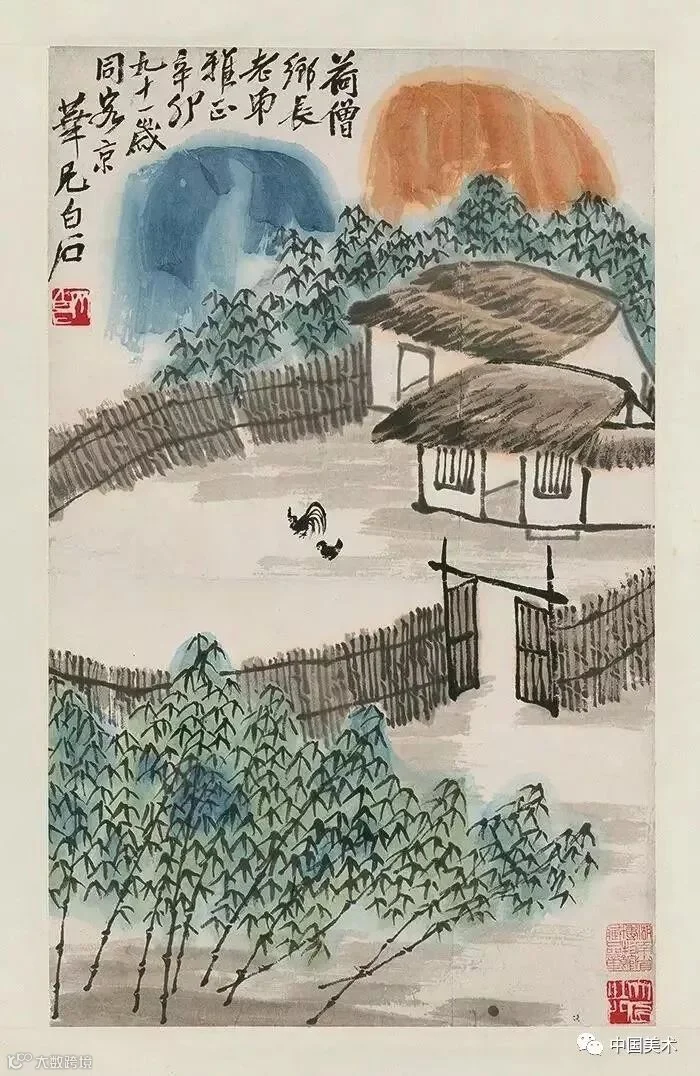 荷僧
鄉長
老弟
雅正
辛卯
九十一歲
同客京
華兄白石
大数跨境
中国美术